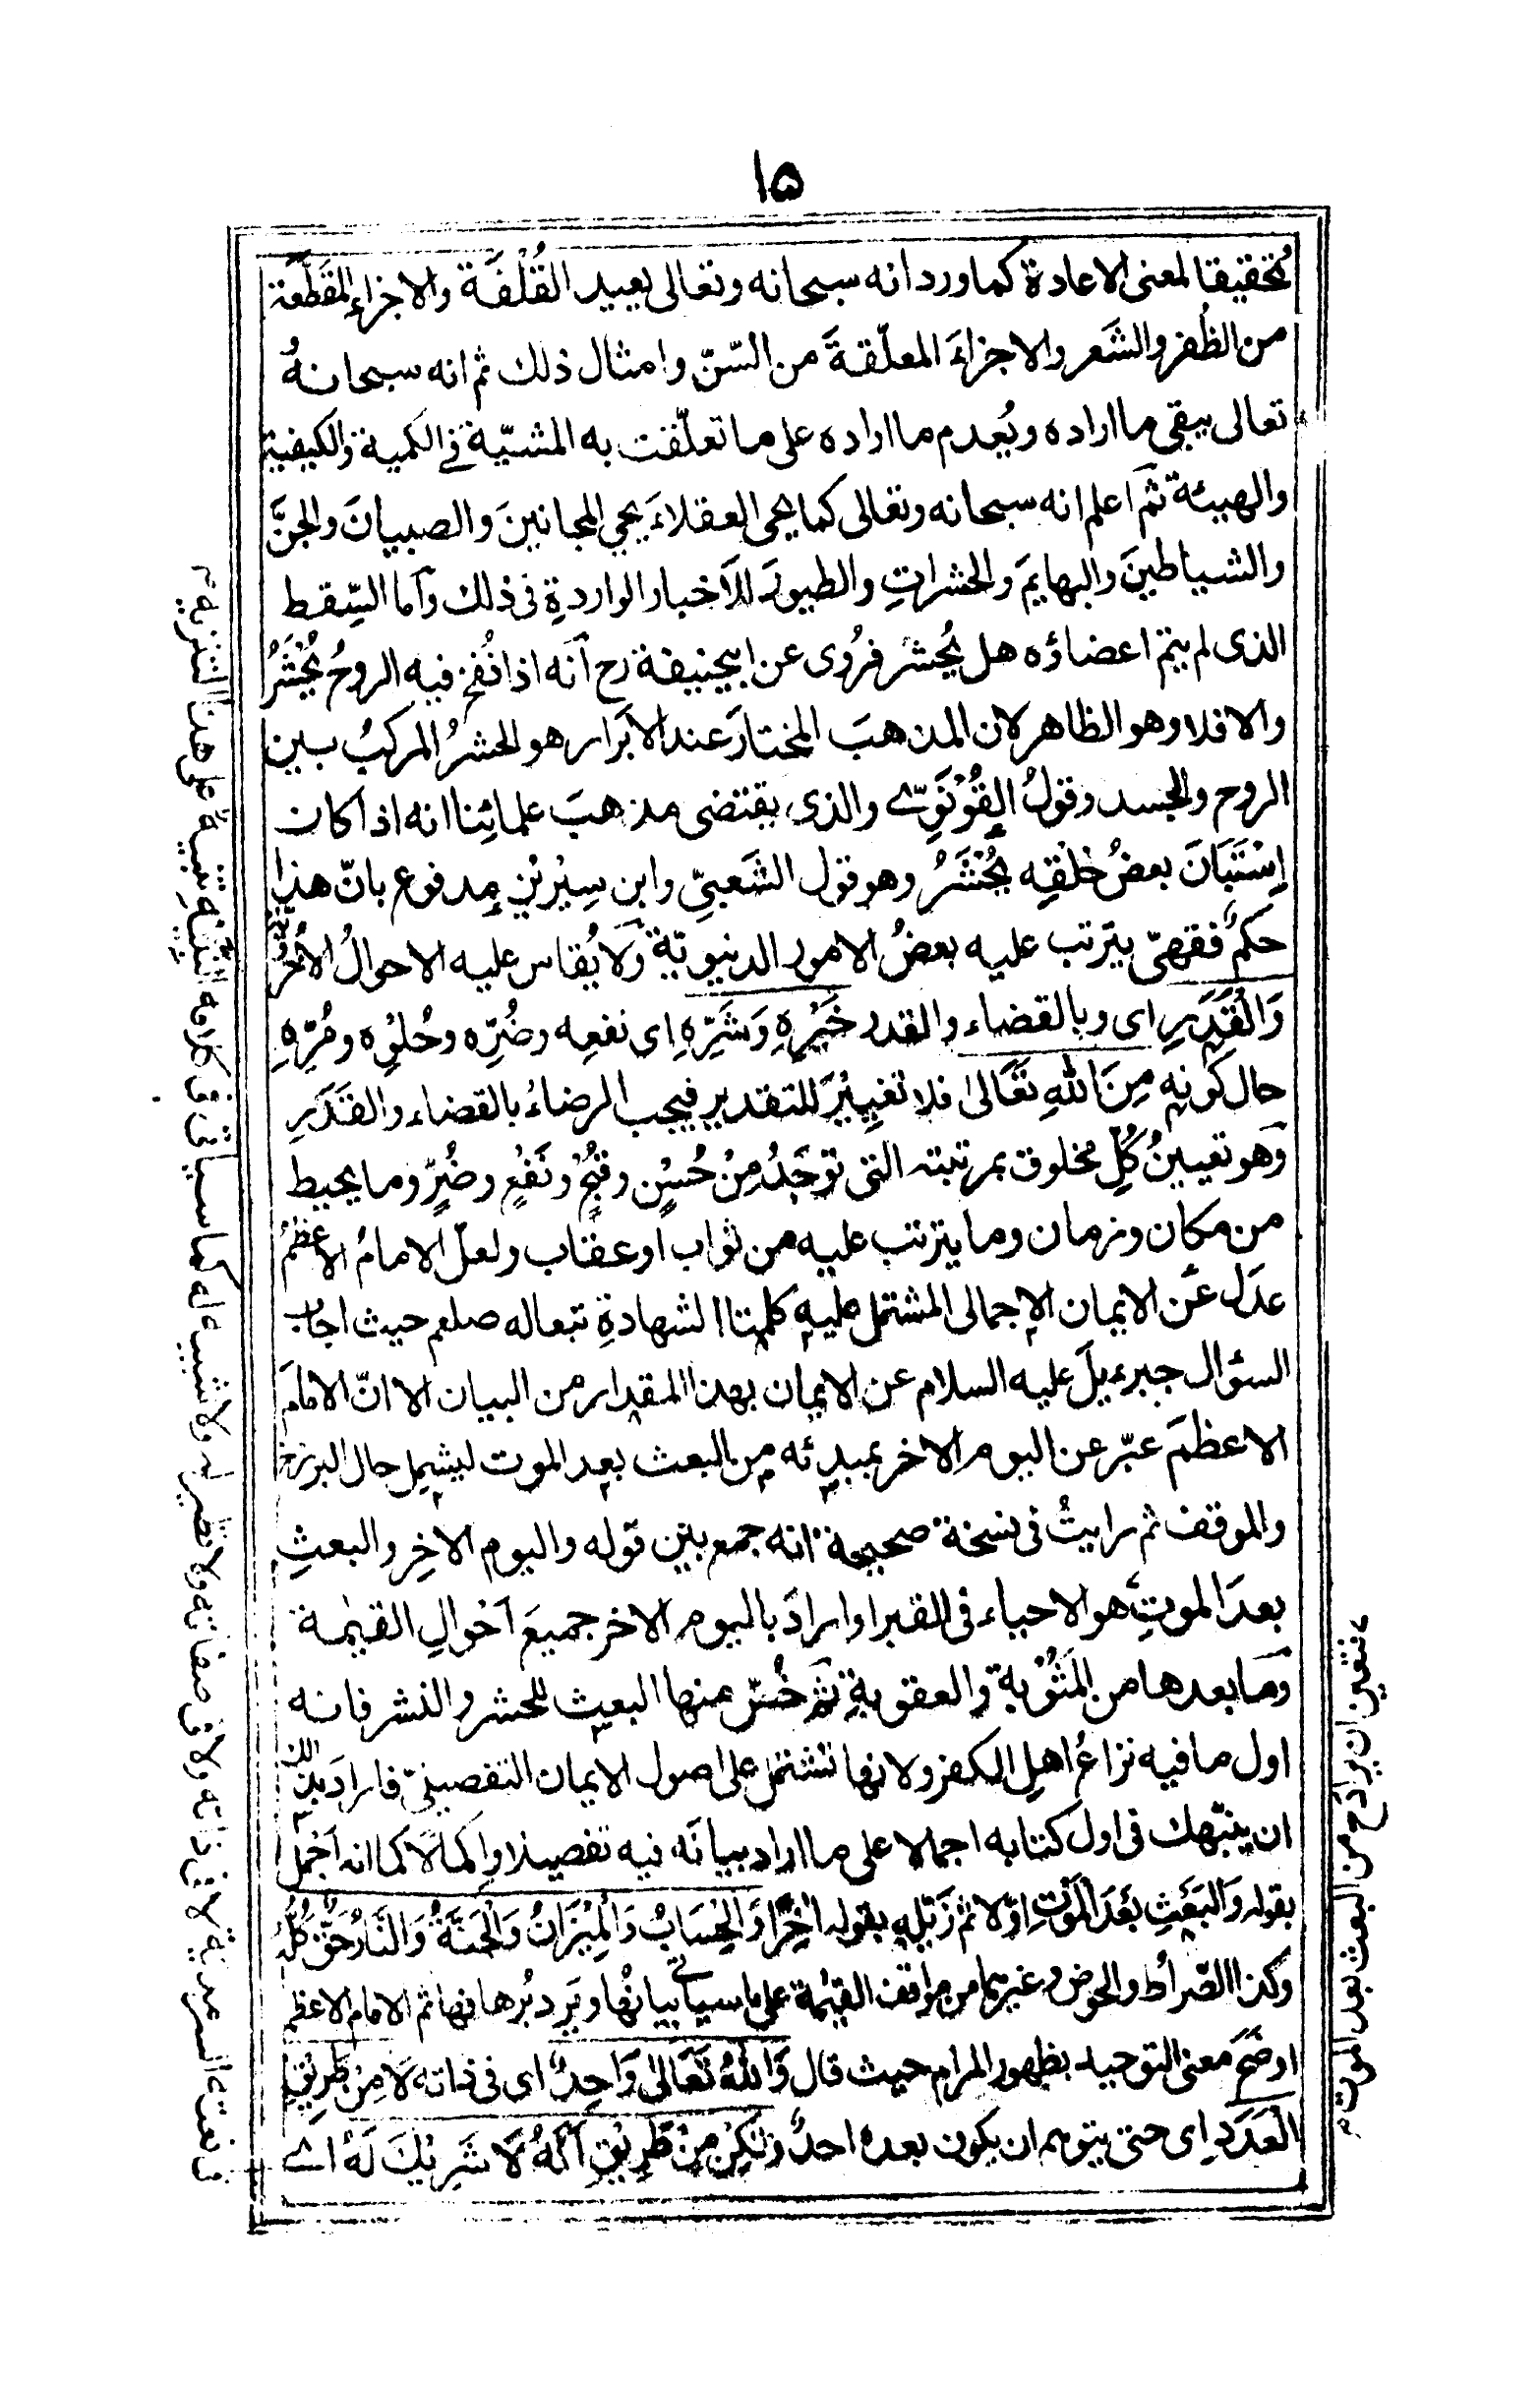 ۱۵
تحقيقا لمعنى الاعادة كما ورد انه سبحانه وتعالى يعيد القُلْفَة والاجزاء المقطّعة
من الظُفر والشَعر والاجزاءَ المعلّقةَ من السّنّ وامثال ذلك ثم انه سبحانهُ
تعالى يبقى ما اراده ويُعدم ما اراده على ما تعلّقت به المشيّة في الكمية والكيفية
والهيئة ثمّ اعلم انه سبحانه وتعالى كما يحى العقلاءَ يحي المجانينَ والصبيانَ والجنَّ
والشياطينَ والبهايمَ والحشراتِ والطيورَ للاَخبار الواردةِ فى ذلك وآما السِّقط
الذى لم يتمّ اعضاؤه هل يُحشر فرُوى عن ابيحنيفة رح آنه اذا نُفخ فيه الروحُ يُحْشَرُ
والا فلا وهو الظاهر لان المذهبَ المختارَ عند الاَبَرار هو الحشرُ المركبُ بين
الروح والجسد وقولُ القُوْنَوِىّ والذى يقتضى مذهبَ علمائنا انه اذا كان
اِسْتَبَانَ بعضُ خَلْقِه يُحْشَرُ وهو قول الشَعبىّ وابن سِيْرِيْن مدفوع بانّ هذا
حكمٌ فقهىّ يترتب عليه بعضُ الامور الدنيويّة وَلا يُقاس عليه الاحوالُ الاُخرويّة
وَالْقَدَرِ اى وبالقضاء والقدر خَيْرِهٖ وَشَرِّهٖ اى نفعِه وضُرِّه وحُلوِه ومُرِّهٖ
حال كونِهٖ مِنَ اللهِ تَعَالٰى فلا تغيِيْرَ للتقدير فيجب الرضاءُ بالقضاء والقَدَرِ
وَهو تعيينُ كُلِّ مخلوق بمرتبته التى توْجَدُ مِنْ حُسْنٍ وقُبْحٍ ونَفْعٍ وضُرٍّ وما يحيط
من مكان وزمان وما يترتب عليه من ثواب او عقاب ولعلّ الامامُ الاعظمُ
عدَل عَن الايمان الاِجمالى المشتمل عليه كلمتا الشهادةِ تبعاله صلعم حيث اجاب
السئوال جبرءيلَ عليه السلام عن الايمان بهذا المقدار من البيان الا انّ الامامَ
الاعظمَ عبّر عن اليوم الاخر بمبدئه من البعث بعد الموت ليشمل حال البرزخ
والموقف ثم رايتُ فى نسخة صحيحة انه جمع بين قوله واليوم الاخِر والبعثِ
بعدَ الموتِ هو الاحياء فى القبر او ارادَ باليوم الاخر جميعَ اَحْوالِ القيٰمة
وَما بعدها من المَثُوْبة والعقوبةِ ثمّ خُصّ منها البعث للحشر والنشر فانه
اول ما فيه نزاعُ اهلِ الكفر ولانها تشتمل على اصول الايمان التفصيلىّ فاراد بذلك
ان ينبّهك فى اول كتابه اجمالا على ما اراد بيانَه فيه تفصيلا واِكمالا كما انه اَجْمل
بقوله وَالبَعَثِ بَعْدَ الْمَوْتِ اوّلا ثم ذَيّله بقوله اٰخِرًا وَالْحِسَابُ وَالْمِيْزَانُ وَالْجَنَّةُ وَالنَّارُ حَقٌّ كُلُّهُ
وكذا الصّراطُ والحوض وغيرهما من مواقف القيٰمة على ما سياتى بيانُها ويَرِد بُرهانُها ثم الامام الاعظم
اوضَحَ معنى التوحيد بظهور المرام حيث قال وَاللهُ تَعَالٰى وَاحِدٌ اى فى ذاته لَا مِنْ طَرِيْقِ
الْعَدَدِ اى حتى يتوهم ان يكون بعده احدٌ وَلٰكِنْ مِنْ طَرِيْقِ اَنَّهُ لَا شَرِيْكَ لَهُ اى
فى نعت السرمدية لا فى ذاته ولا فى صفاته ولا نظير له ولا شبيه له كما سياتى فى كلامه النبيه تنبيه على هذا التنزيه ۱۲
ء فتعين ان يراد ح من البعث بعد الموت ۱۲